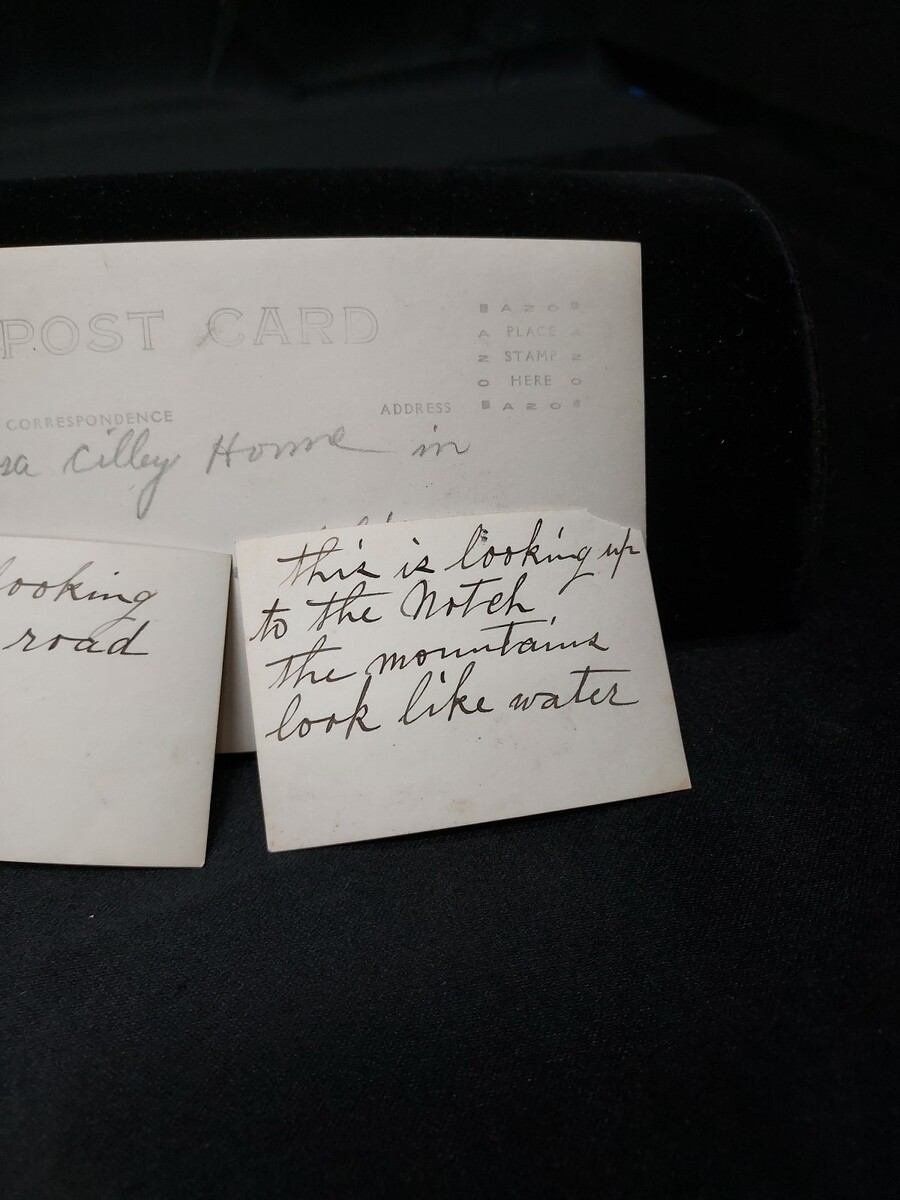 POST CARD
AZO
A PLACE A
Z STAMP Z
O HERE O
AZO
CORRESPONDENCE
ADDRESS
Cilley Home in
looking
road
this is looking up
to the Notch
the mountains
look like water